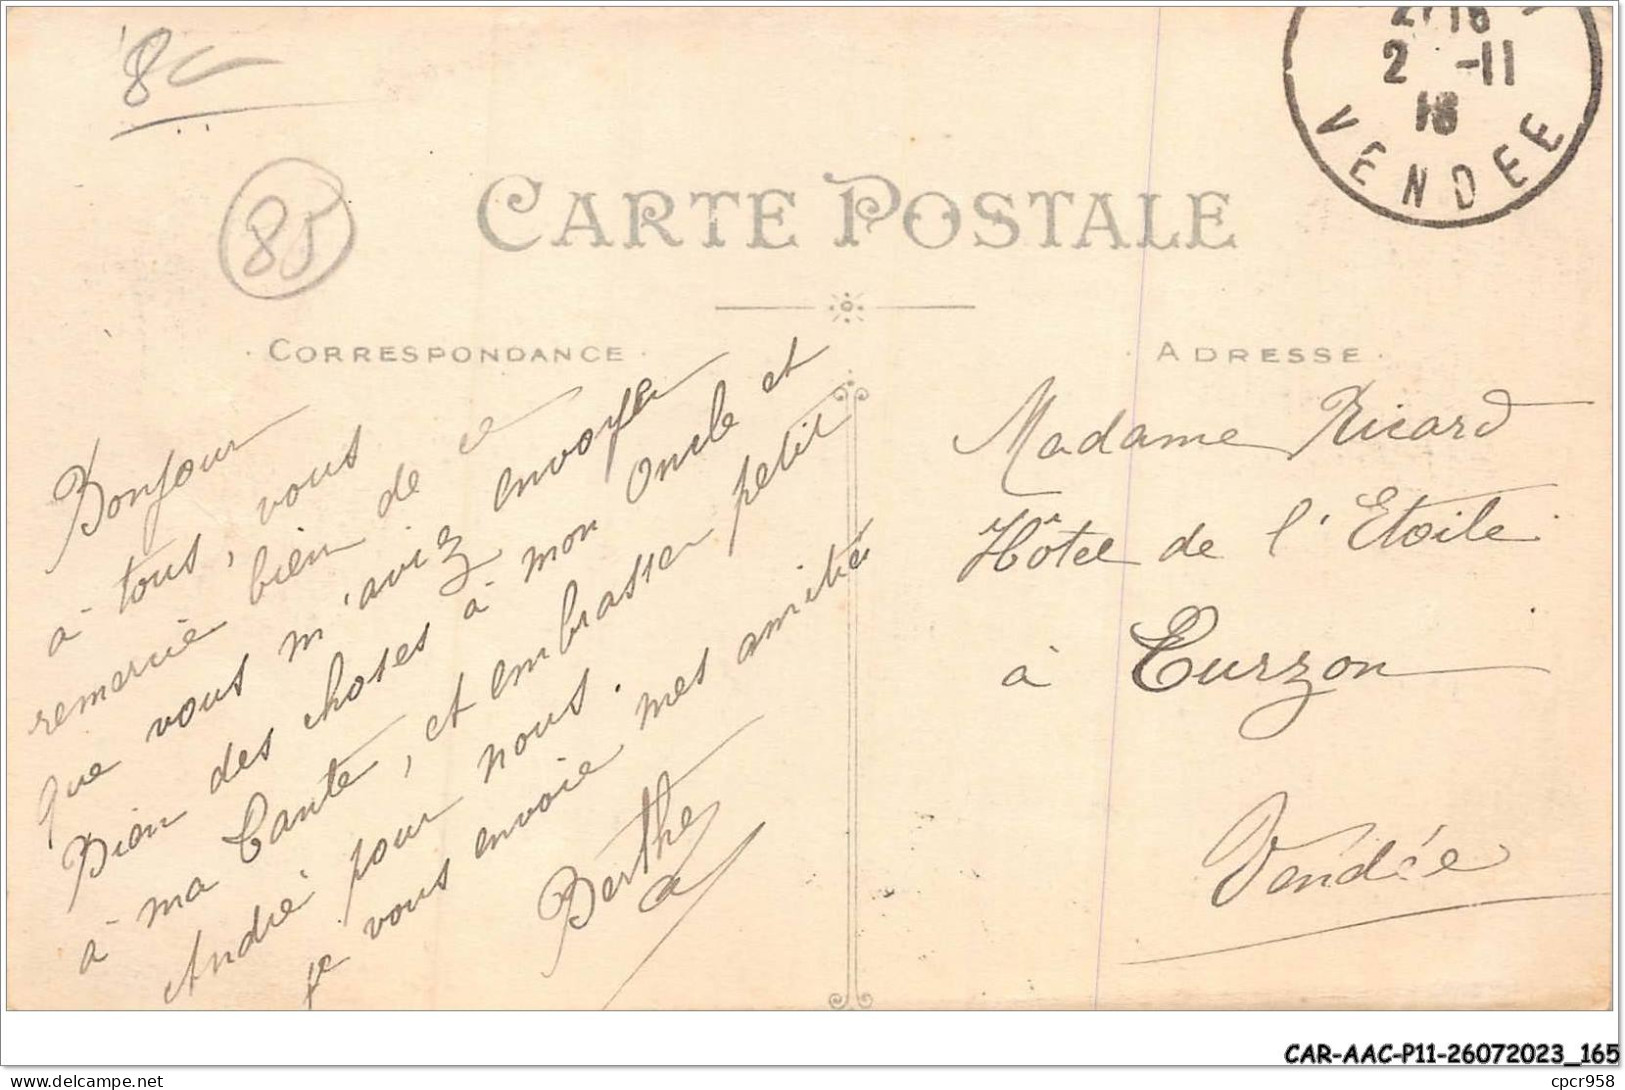 8
85
21 18
2 -11
18
VENDEE
CARTE POSTALE
CORRESPONDANCE
ADRESSE
Bonjour
à tous, vous
remercie bien de ce
que vous m'aviez envoyer
Bien des choses à mon Oncle et
à ma Tante, et embrasser petit
André pour nous.
je vous envoie mes amitié
Berthe
Madame Ricard
Hôtel de l'Etoile
à Curzon
Vendée
CAR-AAC-P11-26072023_165
delcampe.net
cpcr958